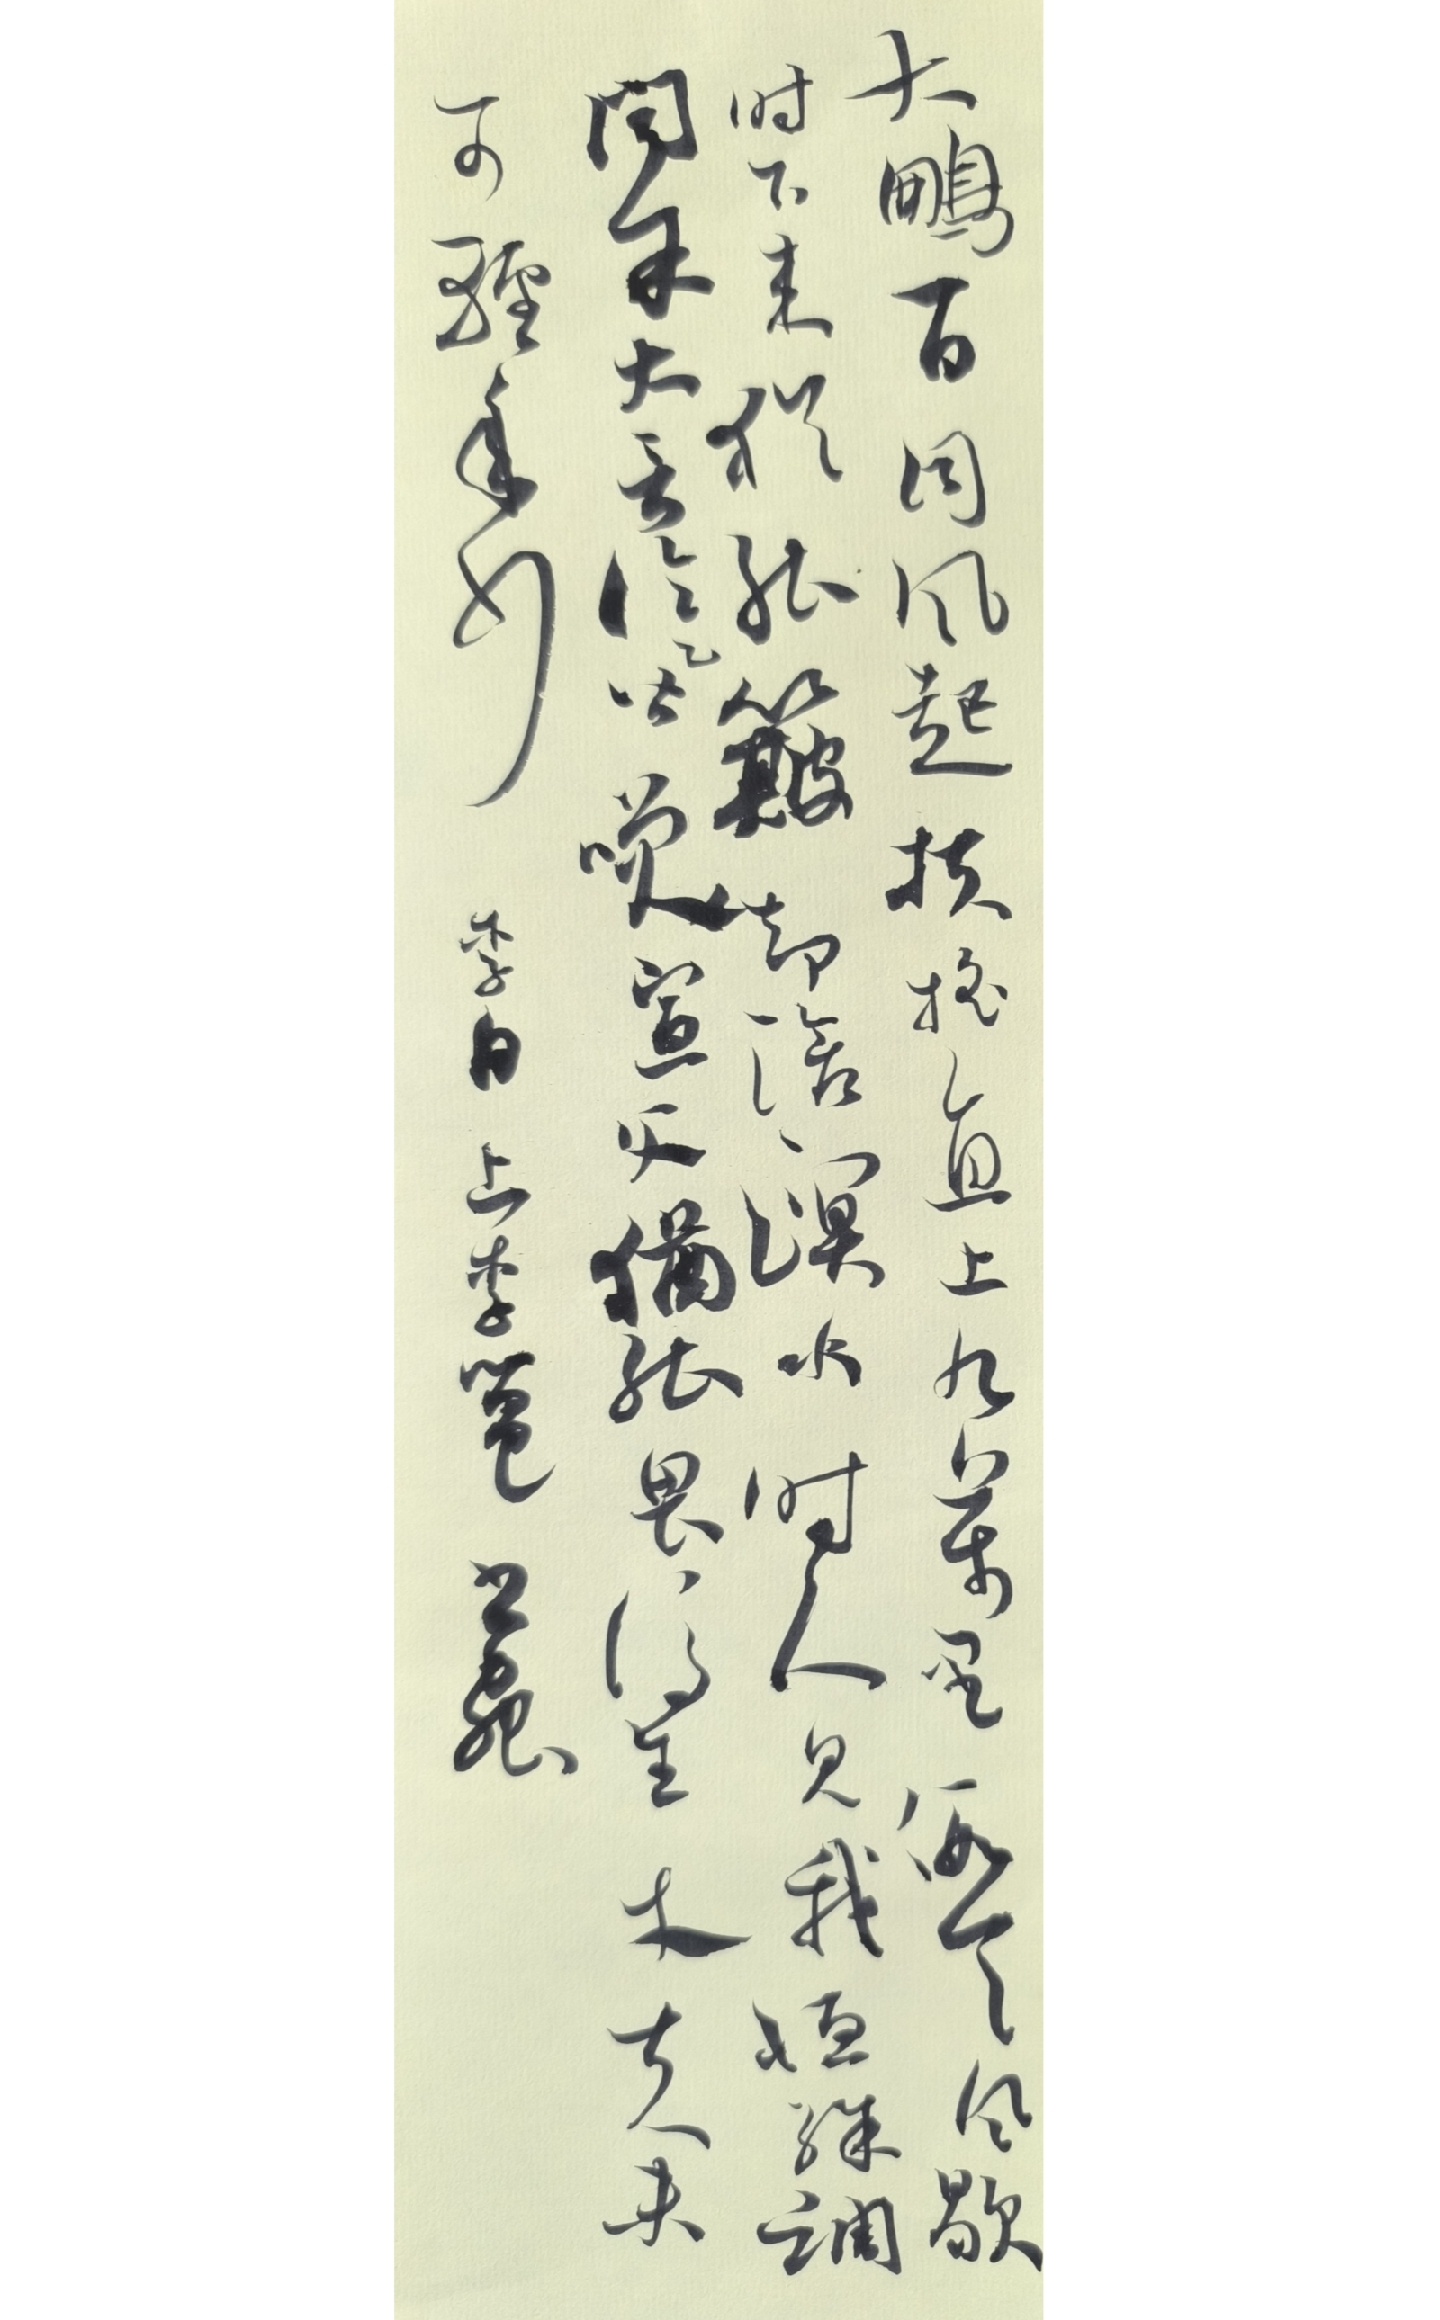 大鵬一日同风起扶搖直上九萬里假令风歇
时下来猶能簸却滄溟水时人見我恒殊調
闻余大言冷皆笑宣父猶能畏後生丈夫未
可輕年少 李白上李邕